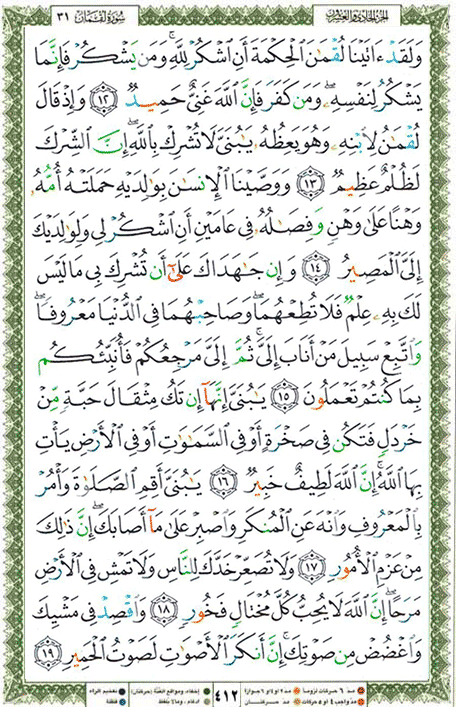 سورة لقمان ٣١ الجزء الحادي والعشرون
وَلَقَدۡ ءَاتَيۡنَا لُقۡمَٰنَ ٱلۡحِكۡمَةَ أَنِ ٱشۡكُرۡ لِلَّهِۚ وَمَن يَشۡكُرۡ فَإِنَّمَا
يَشۡكُرُ لِنَفۡسِهِۦۖ وَمَن كَفَرَ فَإِنَّ ٱللَّهَ غَنِيٌّ حَمِيدٞ ١٢ وَإِذۡ قَالَ
لُقۡمَٰنُ لِٱبۡنِهِۦ وَهُوَ يَعِظُهُۥ يَٰبُنَيَّ لَا تُشۡرِكۡ بِٱللَّهِۖ إِنَّ ٱلشِّرۡكَ
لَظُلۡمٌ عَظِيمٞ ١٣ وَوَصَّيۡنَا ٱلۡإِنسَٰنَ بِوَٰلِدَيۡهِ حَمَلَتۡهُ أُمُّهُۥ
وَهۡنًا عَلَىٰ وَهۡنٖ وَفِصَٰلُهُۥ فِي عَامَيۡنِ أَنِ ٱشۡكُرۡ لِي وَلِوَٰلِدَيۡكَ
إِلَيَّ ٱلۡمَصِيرُ ١٤ وَإِن جَٰهَدَاكَ عَلَىٰٓ أَن تُشۡرِكَ بِي مَا لَيۡسَ
لَكَ بِهِۦ عِلۡمٞ فَلَا تُطِعۡهُمَاۖ وَصَاحِبۡهُمَا فِي ٱلدُّنۡيَا مَعۡرُوفٗاۖ
وَٱتَّبِعۡ سَبِيلَ مَنۡ أَنَابَ إِلَيَّۚ ثُمَّ إِلَيَّ مَرۡجِعُكُمۡ فَأُنَبِّئُكُم
بِمَا كُنتُمۡ تَعۡمَلُونَ ١٥ يَٰبُنَيَّ إِنَّهَآ إِن تَكُ مِثۡقَالَ حَبَّةٖ مِّنۡ
خَرۡدَلٖ فَتَكُن فِي صَخۡرَةٍ أَوۡ فِي ٱلسَّمَٰوَٰتِ أَوۡ فِي ٱلۡأَرۡضِ يَأۡتِ
بِهَا ٱللَّهُۚ إِنَّ ٱللَّهَ لَطِيفٌ خَبِيرٞ ١٦ يَٰبُنَيَّ أَقِمِ ٱلصَّلَوٰةَ وَأۡمُرۡ
بِٱلۡمَعۡرُوفِ وَٱنۡهَ عَنِ ٱلۡمُنكَرِ وَٱصۡبِرۡ عَلَىٰ مَآ أَصَابَكَۖ إِنَّ ذَٰلِكَ
مِنۡ عَزۡمِ ٱلۡأُمُورِ ١٧ وَلَا تُصَعِّرۡ خَدَّكَ لِلنَّاسِ وَلَا تَمۡشِ فِي ٱلۡأَرۡضِ
مَرَحًاۖ إِنَّ ٱللَّهَ لَا يُحِبُّ كُلَّ مُخۡتَالٖ فَخُورٖ ١٨ وَٱقۡصِدۡ فِي مَشۡيِكَ
وَٱغۡضُضۡ مِن صَوۡتِكَۚ إِنَّ أَنكَرَ ٱلۡأَصۡوَٰتِ لَصَوۡتُ ٱلۡحَمِيرِ ١٩
مدّ ٦ حركات لزوماً مدّ ٢ او ٤ او ٦ جوازاً ٤١٢ إخفاء، ومواقع الغنّة (حركتان) تفخيم الراء
مدّ واجب ٤ او ٥ حركات مدّ حركتان إدغام، وما لا يلفظ قلقلة